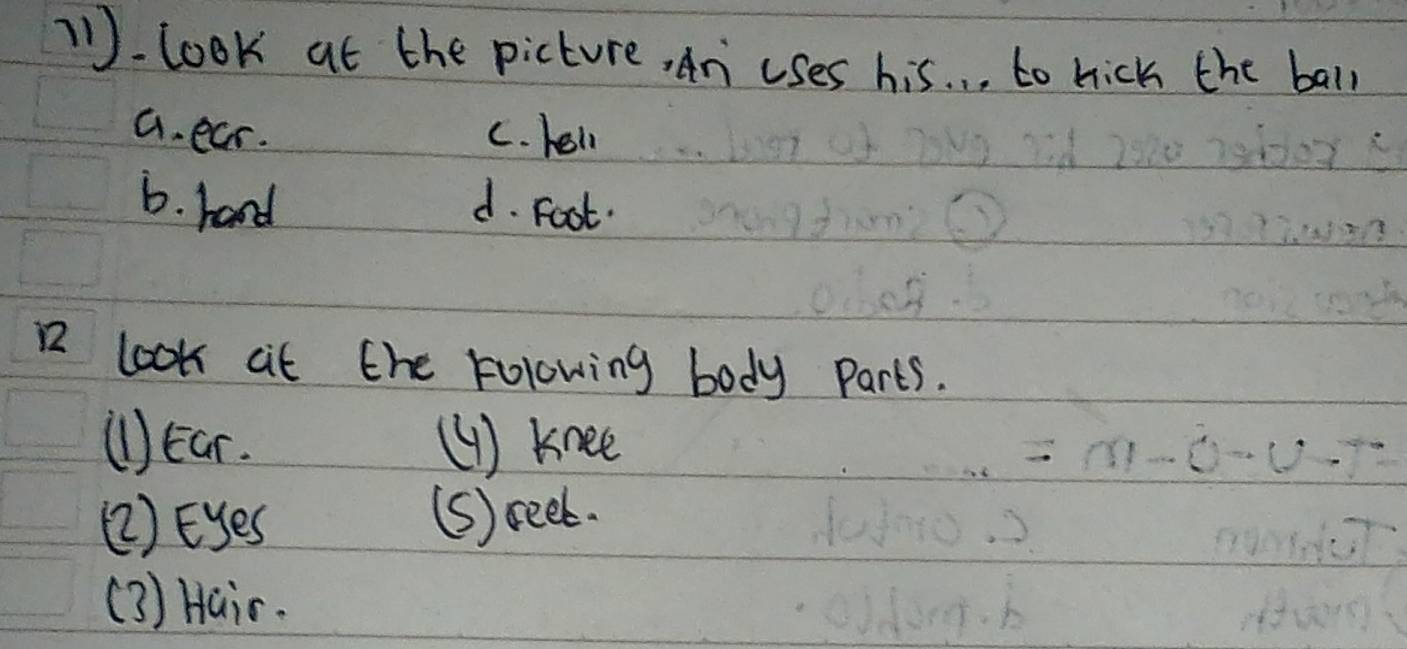 11).-Look at the picture, Ari uses his... to kick the ball
a. ear. c. hell
b. hand d. Foot.
12 Look at the Folowing body Parts.
(1) Ear. (4) Knee
(2) Eyes (5) feet.
(3) Hair.